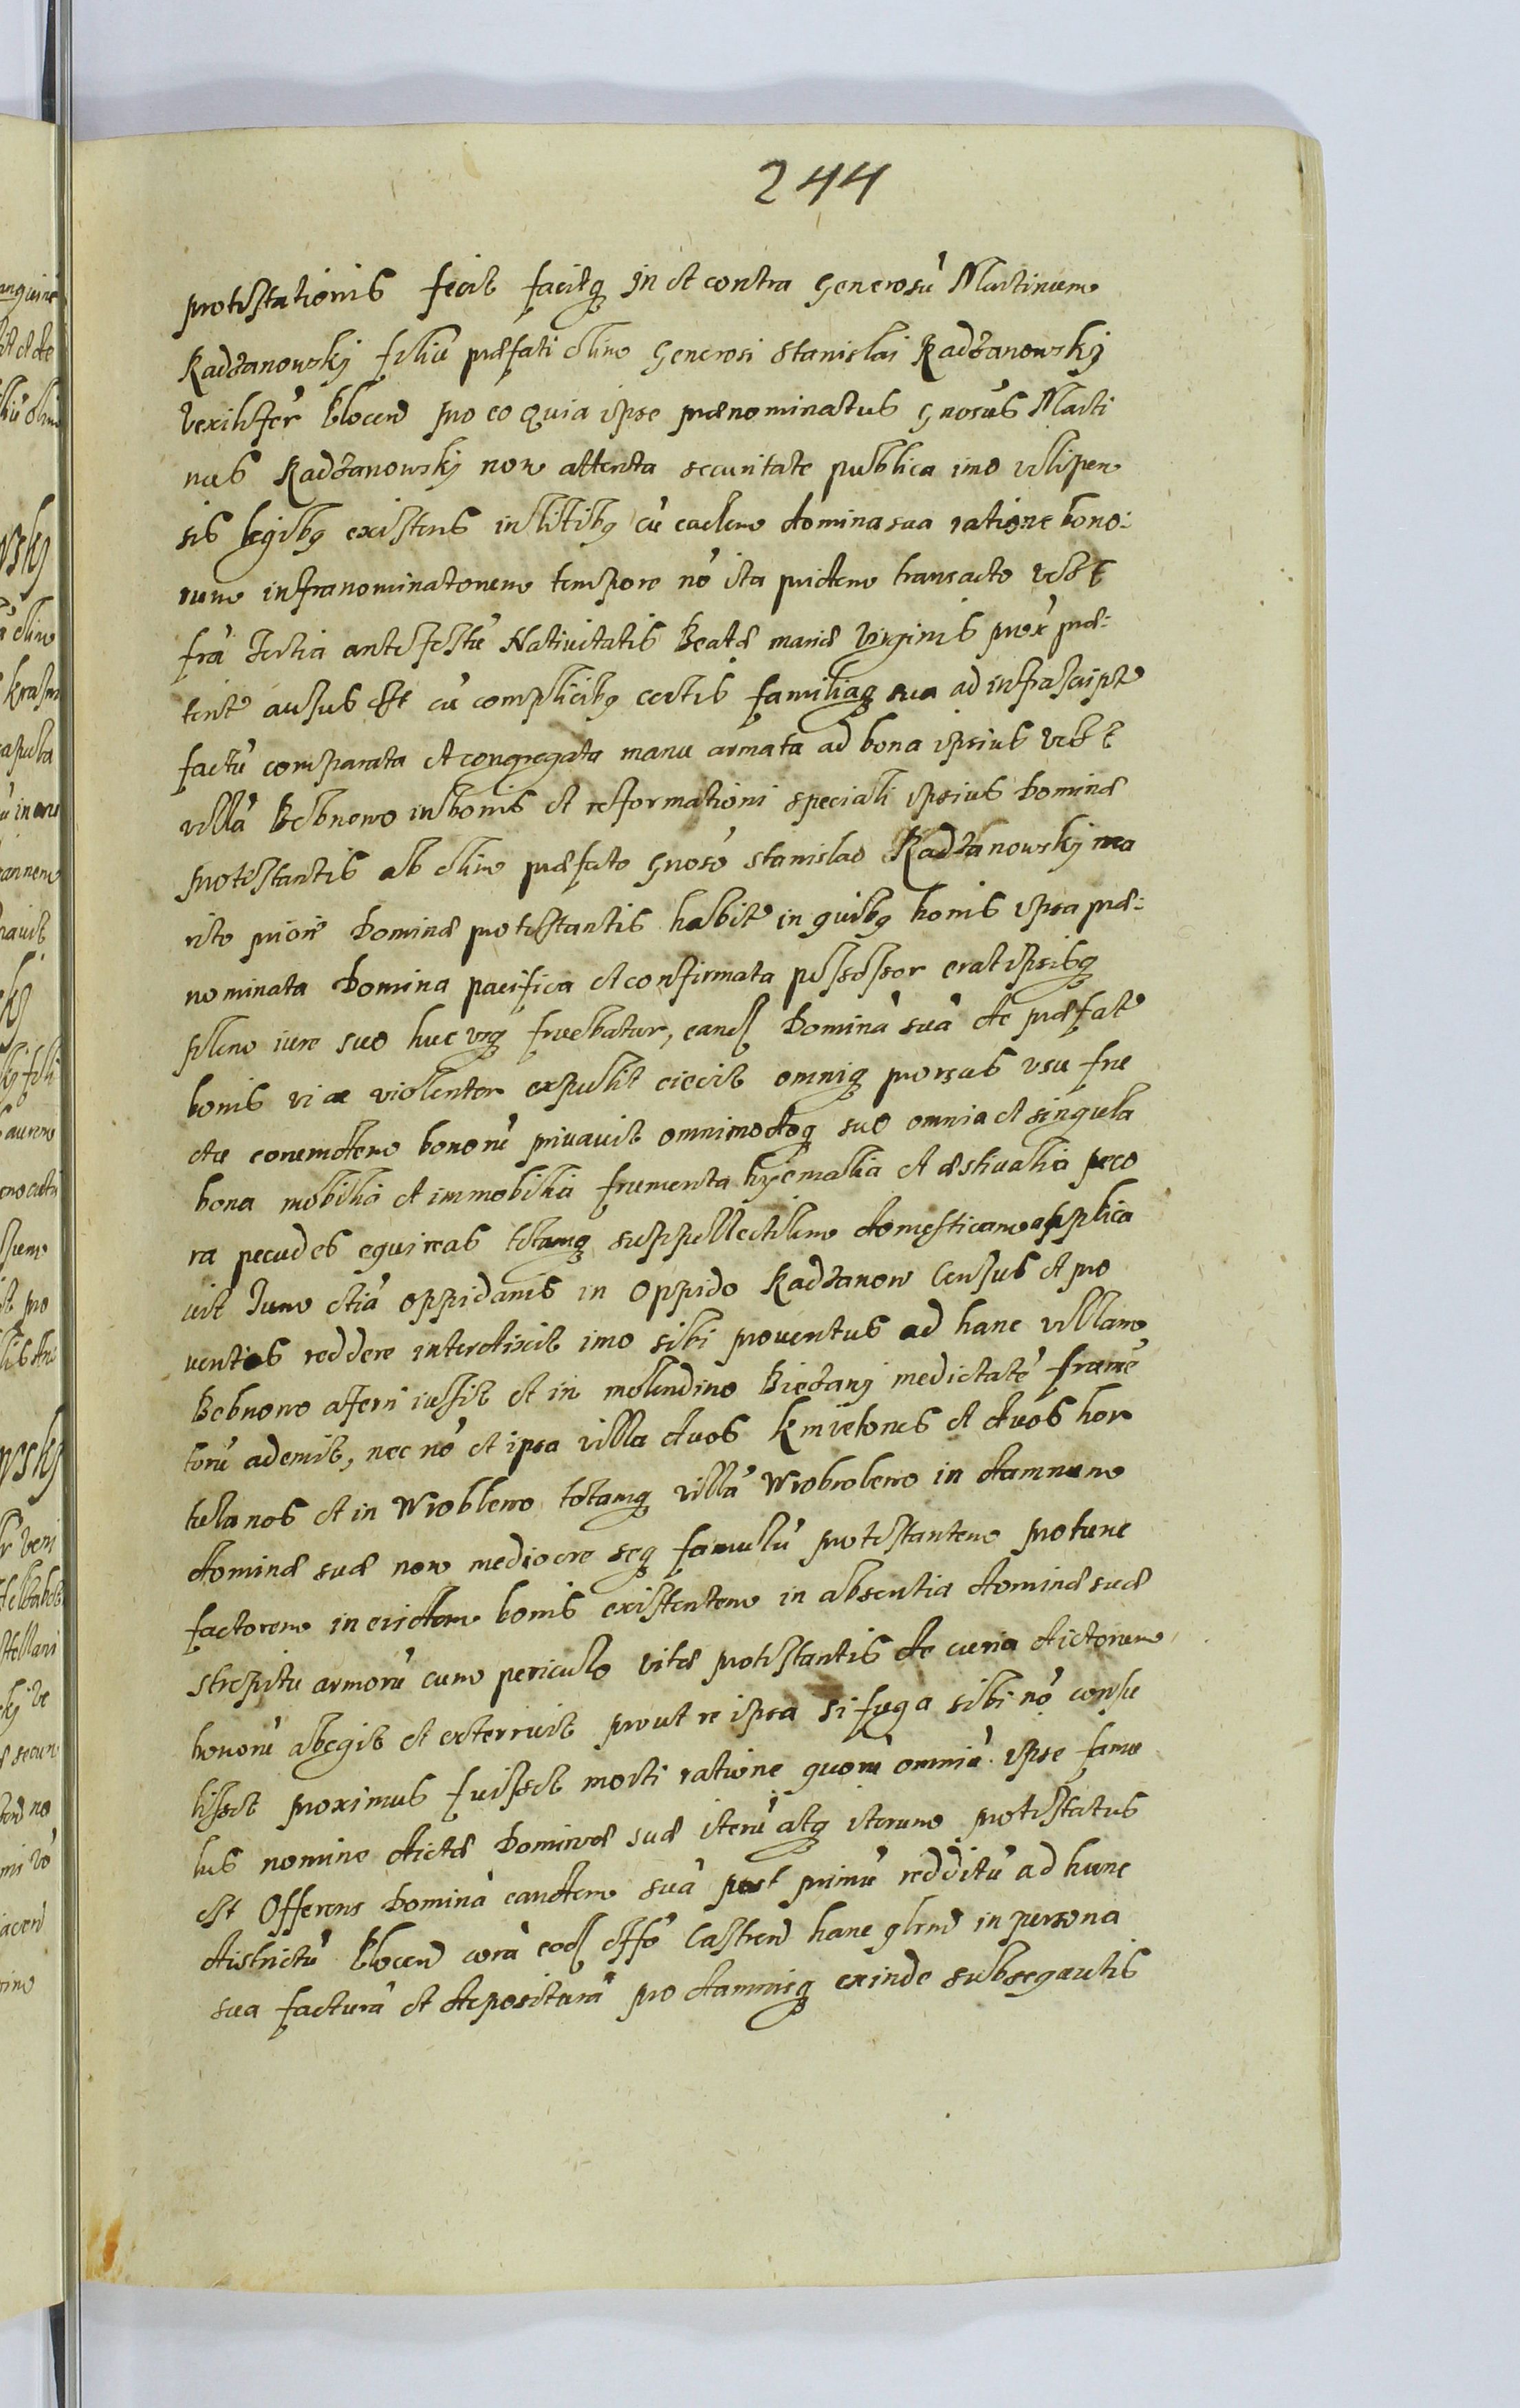 244
protestationis fecit facitq in et contra Generosù Martinum
Radzanowskj filiù præfati olim Generosi Stanislai Radzanowskj
Vexilifer Plocen pro eo quia ipse prænominatus Gnosus Marti
nus Radzanowskj non attenta securitate publica imo vilipen
sis legibq existens in litibq cù eadem domina sua ratione bono:
rum infranominatorum tempore nò ita pridem transacto vidzt
fra Tertia ante festù Nativitatis Beatæ mariæ Virginis prox præ:
terit ausus est cù complicibq certis familiaq sua ad infrascript
factù comparata et congregata manu armata ad bona ipsius vidzt
villà Bebnowo in bonis et reformationi speciali ipsius Dominæ
protestantis ab olim præfato Gnoso Stanislao Radzanowskj ma
rito priori Dominæ protestantis habit in quibq bonis ipsa præ:
nominata Domina pacifica et confirmata possessor erat ipsibq
pleno iure suo huc vsq fruebatur, eand Dominà suà de præfat
bonis vi ac violenter expulit eiecit omniq prorsus vsu fru
ctu eorumdem bonorù privavit omnimodoq suo omnia et singula
bona mobilia et immobilia frumenta hyemalia et æstivalia peco
ra pecudes equireas totamq suppellectilem domesticam applica
vit Tum etià oppidanis in Oppido Radzanow Census et pro
ventus reddere interdixit imo sibi proventus ad hanc villam
Bebnowo afferri iussit et in molendino Biedzanj medietatè frumè
torù ademit, nec nò et ipsa villa duos kmietones et duos hor
tulanos et in Wroblewo totamq villà Wrobwlewo in damnum
dominæ suæ non mediocre seq famulù protestantem protunc
factorem in eisdem bonis existentem in absentia dominæ suæ
strepitu armorù cum periculo vitæ protestantis de curia dictorum
bonorù abegit et exterruit prout re ipsa si fuga sibi nò consu
lisset proximus fuisset morti ratione quorù omniù ipse famu
lus nomine dictæ Dominæ suæ iterù atq iterum protestatus
est Offerens Dominà eandem suà post primù redditù ad hunc
districtù Plocen corà eod Offo Castren hanc qlrm in persona
sua facturà et deposituràpro damnisq exinde subsequutis